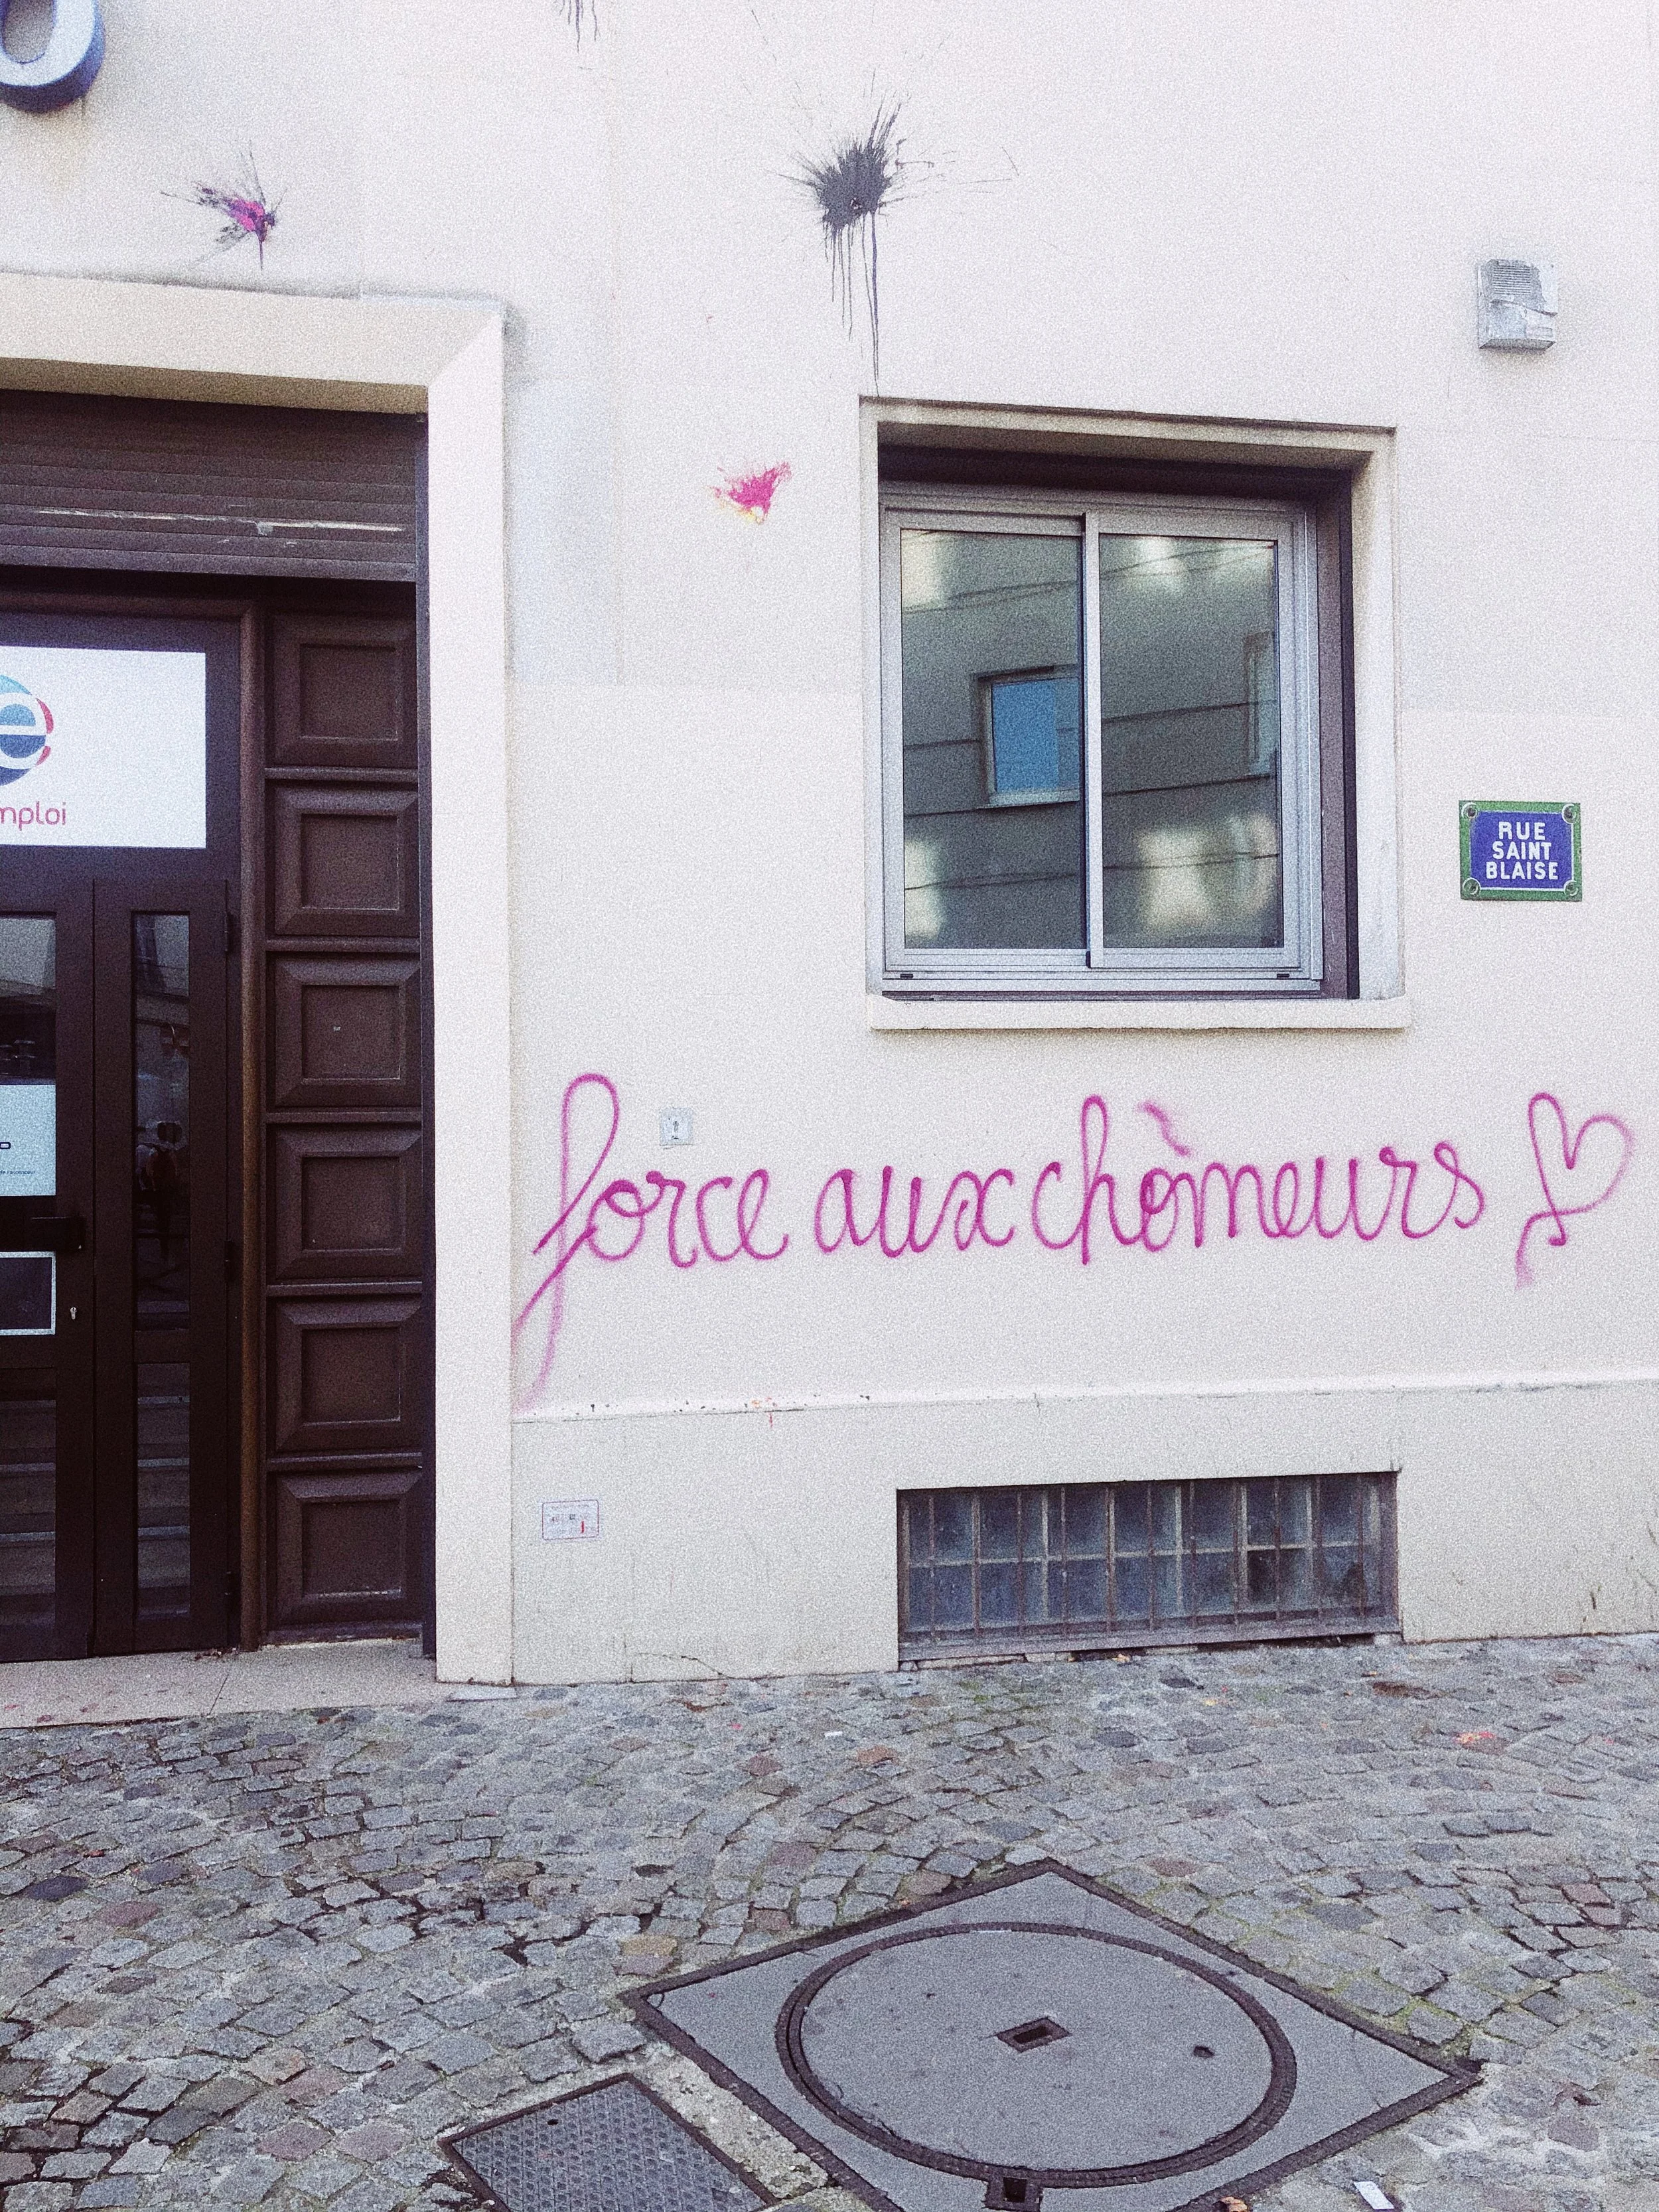 O
e
mploi
RUE
SAINT
BLAISE
force aux chômeurs